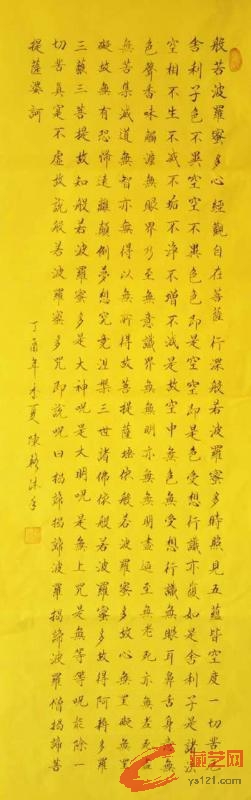 般若波羅蜜多心經觀自在菩薩行深般若波羅蜜多時照見五蘊皆空度一切苦厄
舍利子色不異空空不異色色即是空空即是色受想行識亦復如是舍利子是諸法
空相不生不滅不垢不淨不增不減是故空中無色無受想行識無眼耳鼻舌身意無
色聲香味觸法無眼界乃至無意識界無無明亦無無明盡乃至無老死亦無老死盡
無苦集滅道無智亦無得以無所得故菩提薩埵依般若波羅蜜多故心無罣礙無罣
礙故無有恐怖遠離顛倒夢想究竟涅槃三世諸佛依般若波羅蜜多故得阿耨多羅
三藐三菩提故知般若波羅蜜多是大神咒是大明咒是無上咒是無等等咒能除一
切苦真實不虛故說般若波羅蜜多咒即說咒曰揭諦揭諦波羅揭諦波羅僧揭諦菩
提薩婆訶
丁酉年季夏陳沐手
艺网
ys121.com